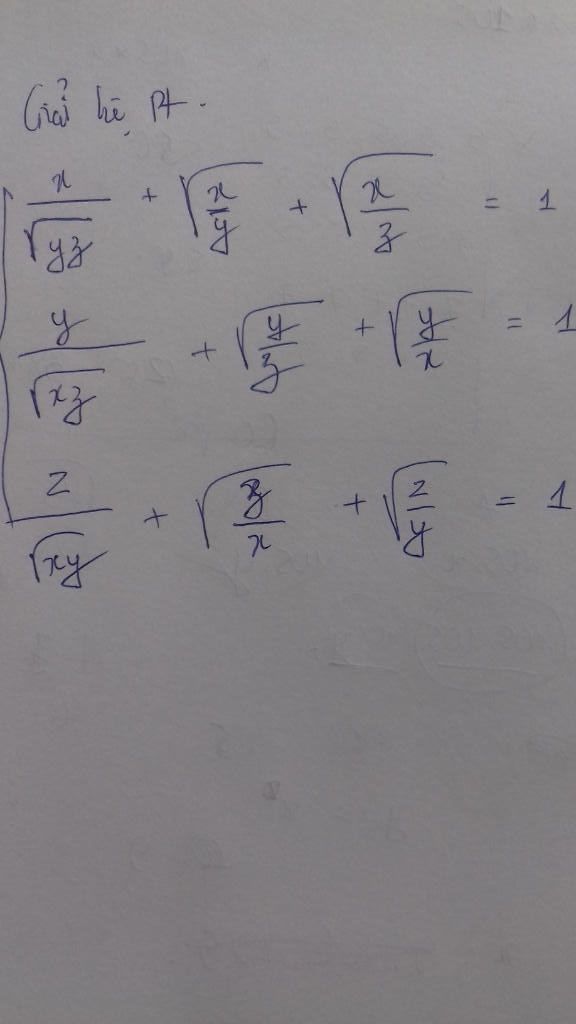 Giải hệ Pt.
x/√(yz) + √(x/y) + √(x/z) = 1
y/√(xz) + √(y/z) + √(y/x) = 1
z/√(xy) + √(z/x) + √(z/y) = 1